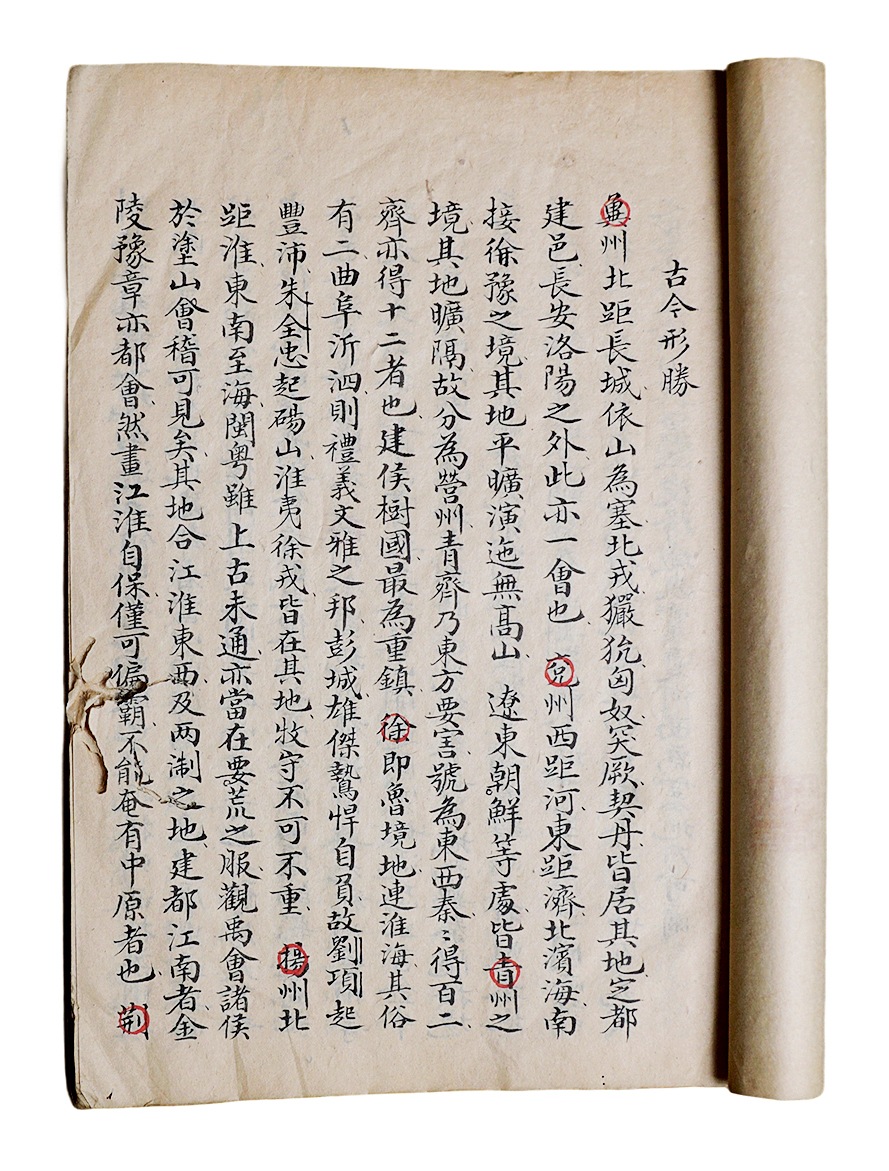 古今形勝
冀州北距長城依山為塞北戎玁狁匈奴突厥契丹皆居其地定都
建邑長安洛陽之外此亦一會也兗州西距河東距濟北濱海南
接徐豫之境其地平曠演迤無高山遼東朝鮮等處皆青州之
境其地曠隅故分為營州青齊乃東方要害號為東西秦秦得百二
齊亦得十二者也建侯樹國最為重鎮徐即魯境地連淮海其俗
有二曲阜沂泗則禮義文雅之邦彭城雄傑鷙悍自負故劉項起
豐沛朱全忠起碭山淮夷徐戎皆在其地牧守不可不重揚州北
距淮東南至海閩粤雖上古未通亦當在要荒之服觀禹會諸侯
於塗山會稽可見矣其地合江淮東西及两淛之地建都江南者金
陵豫章亦都會然畫江淮自保僅可偏霸不能奄有中原者也荆